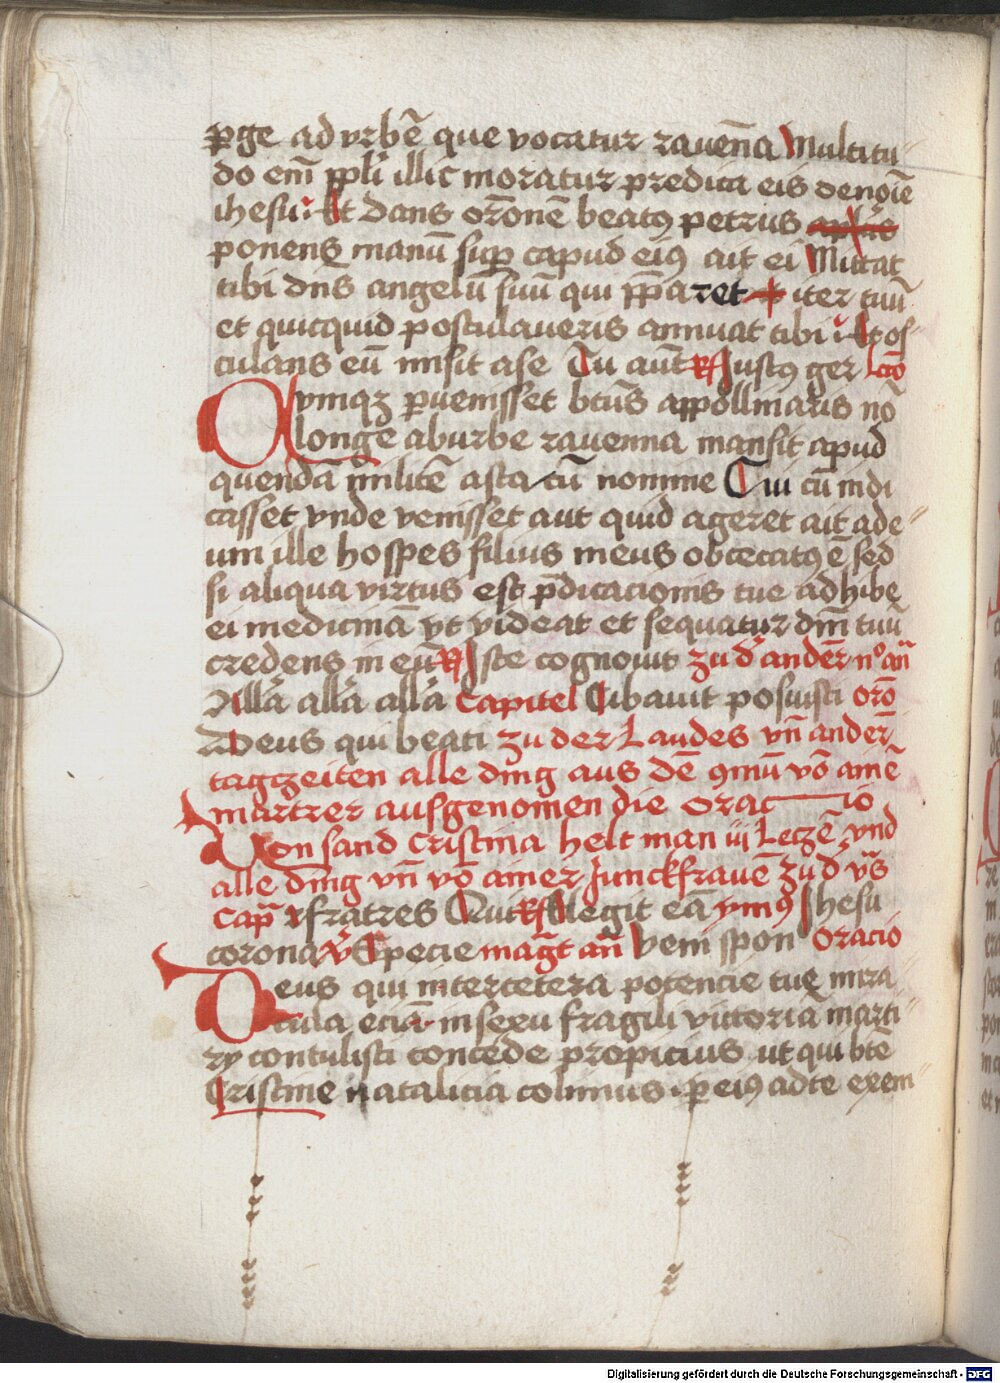 ꝑge ad vrbē que vocatur rauēna Multitu⸗
do em̄ ppl̄i illic moratur predica eis denoīe
ihesu Et dans orōnē beatꝯ petrus
ponens manū suꝑ capud eiꝯ ait ei Mittat
tibi dn̄s angelū suū qui p̄paret iter tuū
et quicquid postulaueris annuat tibi Et os⸗
culans eū misit a se Tu aūt ℟ Justꝯ ger Lc̄io
Cvmqꝫ ꝑuenisset bt̄us appollinaris nō
longe ab urbe rauenna mansit apud
quendā militē nomine Cui cū indi
casset vnde venisset aut quid ageret ait ade⸗
um ille hospes filius meus obcecatꝯ ē sed
si aliqua virtus est p̄dicacionis tue adhibe
ei medicinā vt videat et sequatur dm̄ tuū
credens in eū ℟ Iste cognouit zu d' ander n° an̄
All'a all'a all'a Capitel Cibauit posuisti orō
Deus qui beati zu der Laudes vn̄ ander
tagczeiten alle ding aus dē 9mū vō aīnē
martrer ausgenomen die Oracio
Von sand Cristina helt man iij Leczē vnd
alle ding vn̄ vō ainer Junckfrauē zu d' v̄s
Cap̄ fratres Qui ℟ Elegit eā ymꝯ Jhesu
corona v̄ Specie maḡt an̄ Veni spon Oracio
Deus qui inter cetera potencie tue mira
cula eciā in sexu fragili victoria marti⸗
ry contulisti concede propicius ut qui btē
Cristine natalicia colimus ꝑ eiꝯ ad te exem⸗
Digitalisierung gefördert durch die Deutsche Forschungsgemeinschaft - DFG